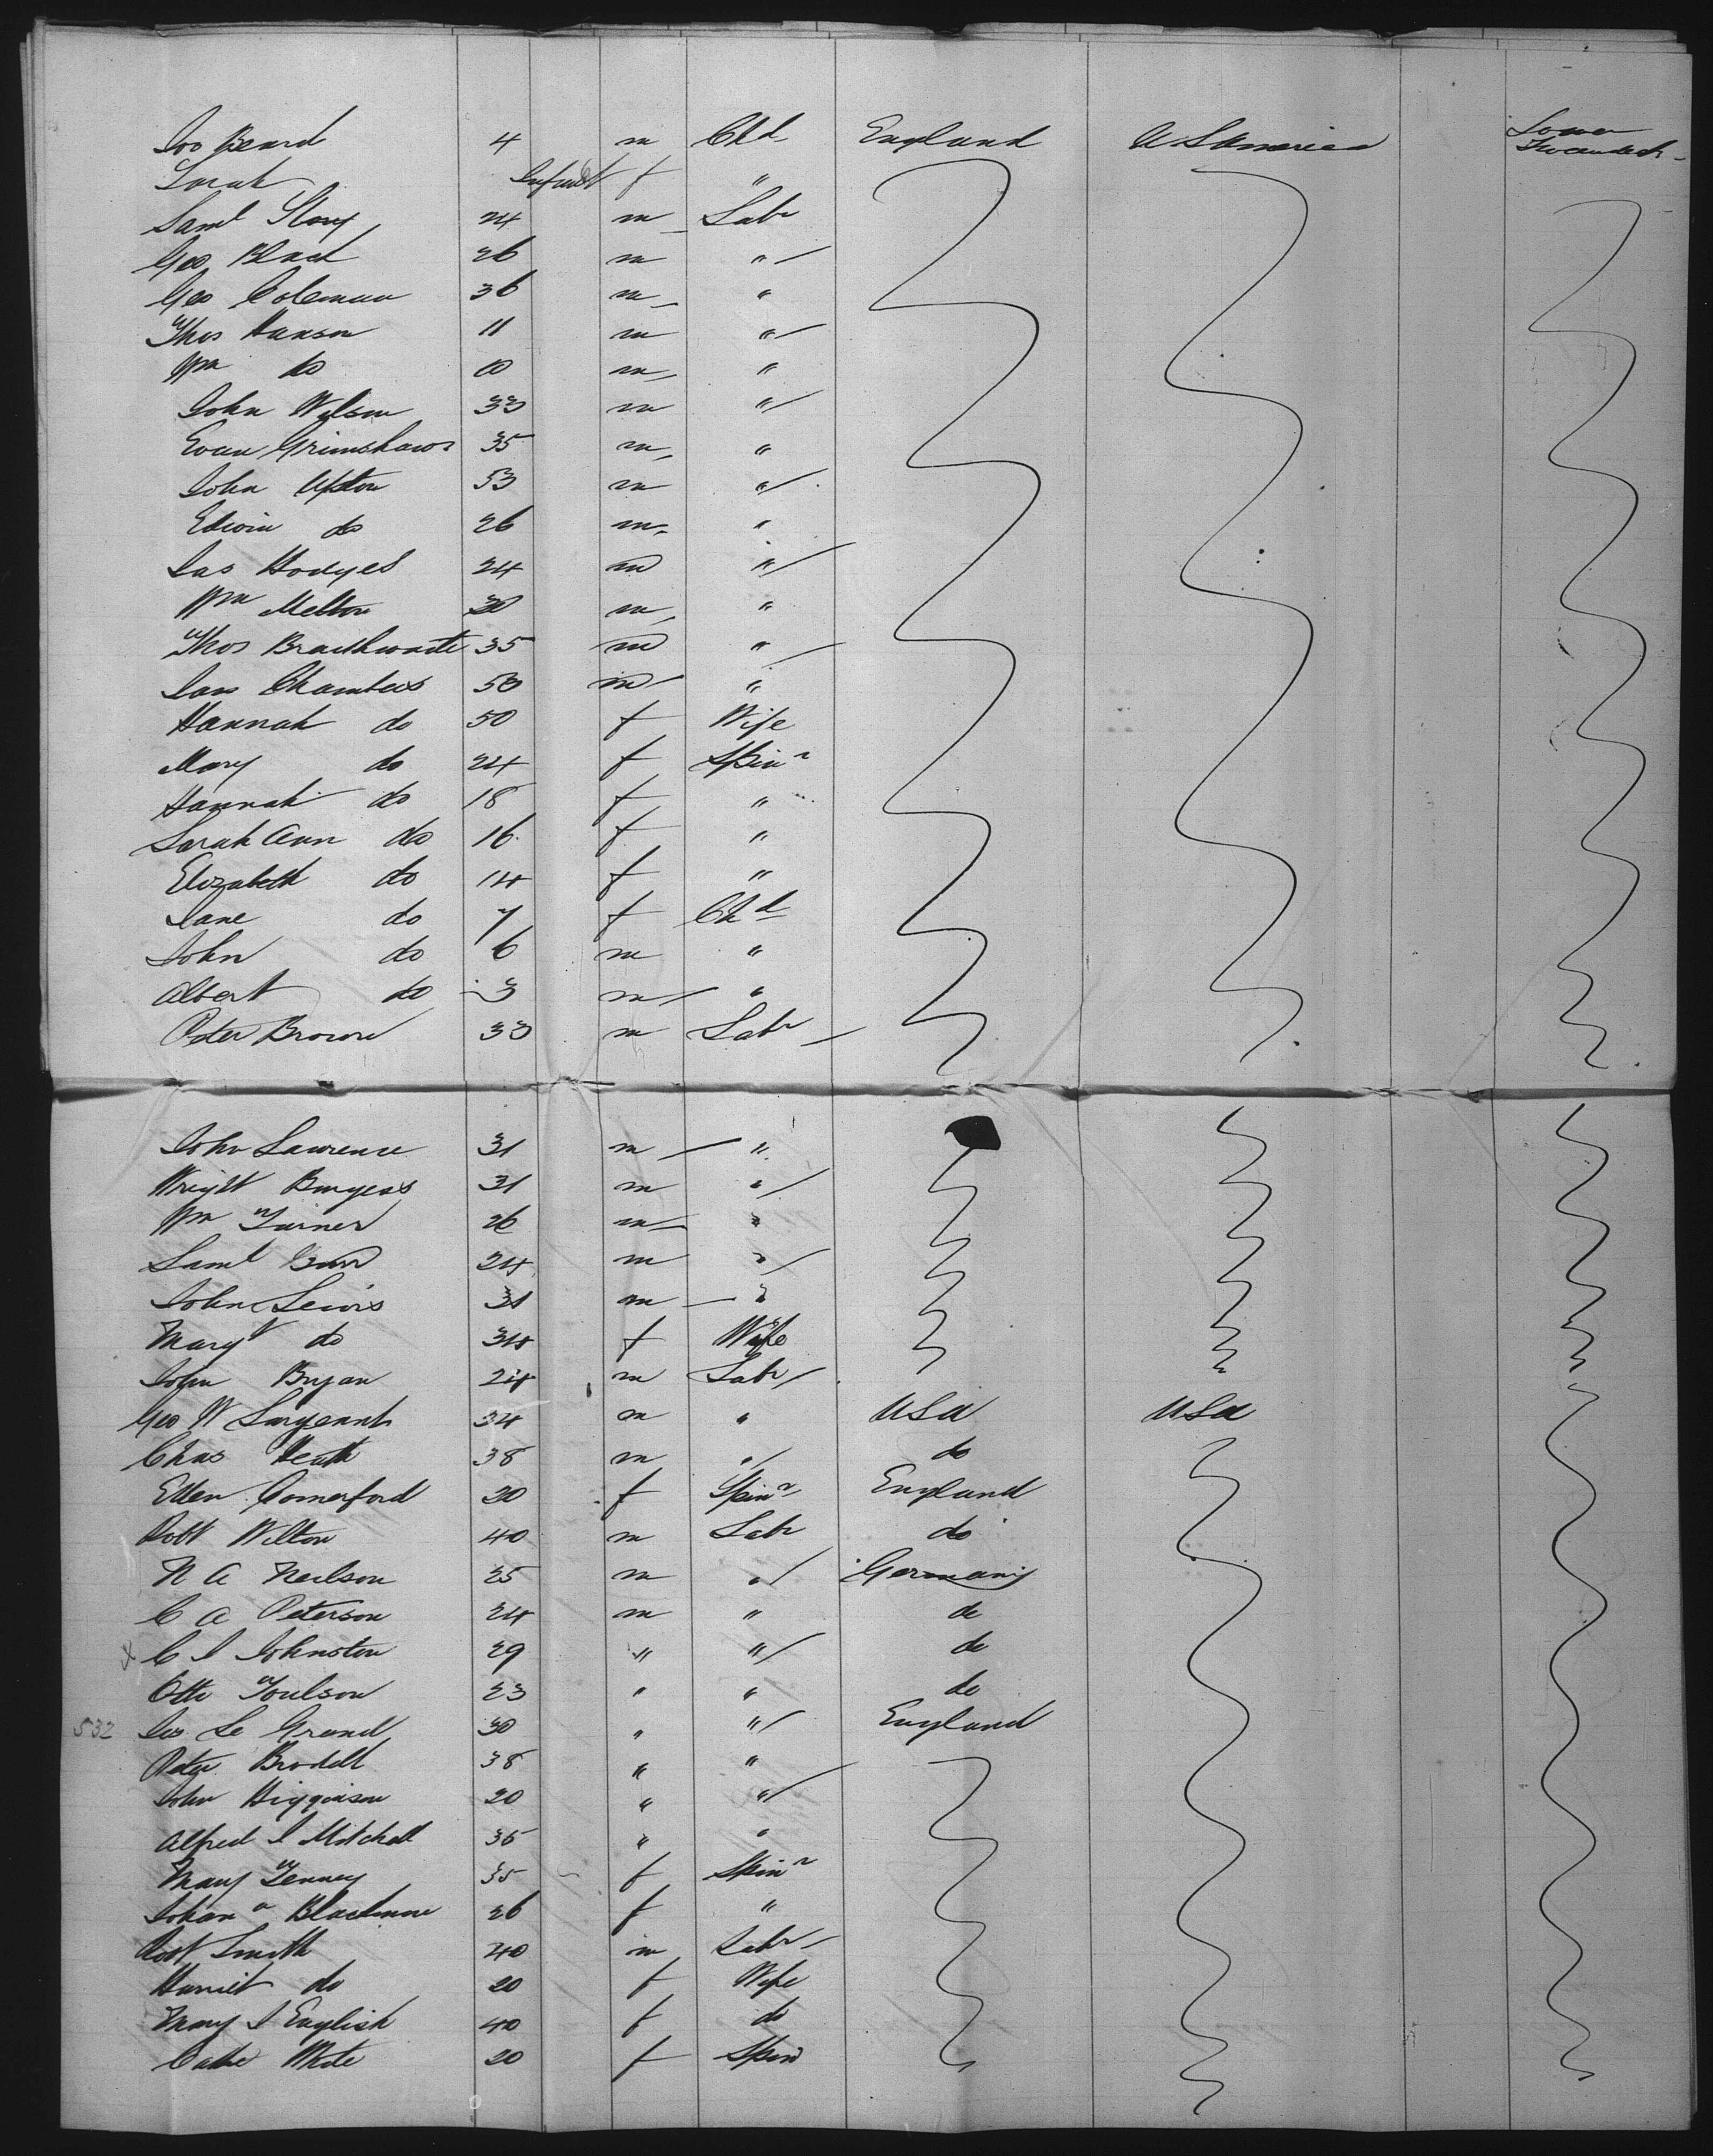 Jos Beard 4 m Chd England U S America Lower
Sarah Infant f "
Saml Story 24 m Labr
Geo Black 26 m "
Geo Coleman 36 m "
Thos Hanson 11 m "
Wm do 10 m "
John Wilson 33 m "
Evan Grimshaw 35 m "
John Upton 53 m "
Edwin do 26 m "
Jas Hodges 24 m "
Wm Melton 30 m "
Thos Braithwaite 35 m "
Jas Chambers 50 m "
Hannah do 50 f Wife
Mary do 24 f Spinr
Hannah do 18 f "
Sarah Ann do 16 f "
Elizabeth do 14 f "
Jane do 7 f Chd
John do 6 m "
Albert do 3 m "
Peter Brown 33 m Labr
John Lawrence 31 m "
Wright Burgess 31 m "
Wm Turner 26 m "
Saml 24 m "
John Lewis 31 m "
Mary do 34 f Wife
John Bryan 24 m Labr
Geo W Sargeant 34 m " USA USA
Chas Heath 38 m " do
Ellen Comerford 20 f Spinr England
Robt Wilton 40 m Labr do
N A Neilson 25 m " Germany
C A Peterson 24 m " do
x C J Johnston 29 " " do
Otto Poulson 23 " " do
532 Jos Le Grand 30 " " England
Peter Brodell 38 " "
John Higginson 20 " "
Alfred J Mitchell 36 " "
Mary Tenney 35 f Spinr
Johana Blackmore 26 f "
Robt Smith 40 m Labr
Harriet do 20 f Wife
Mary J English 40 f do
Cathe White 20 f Spin